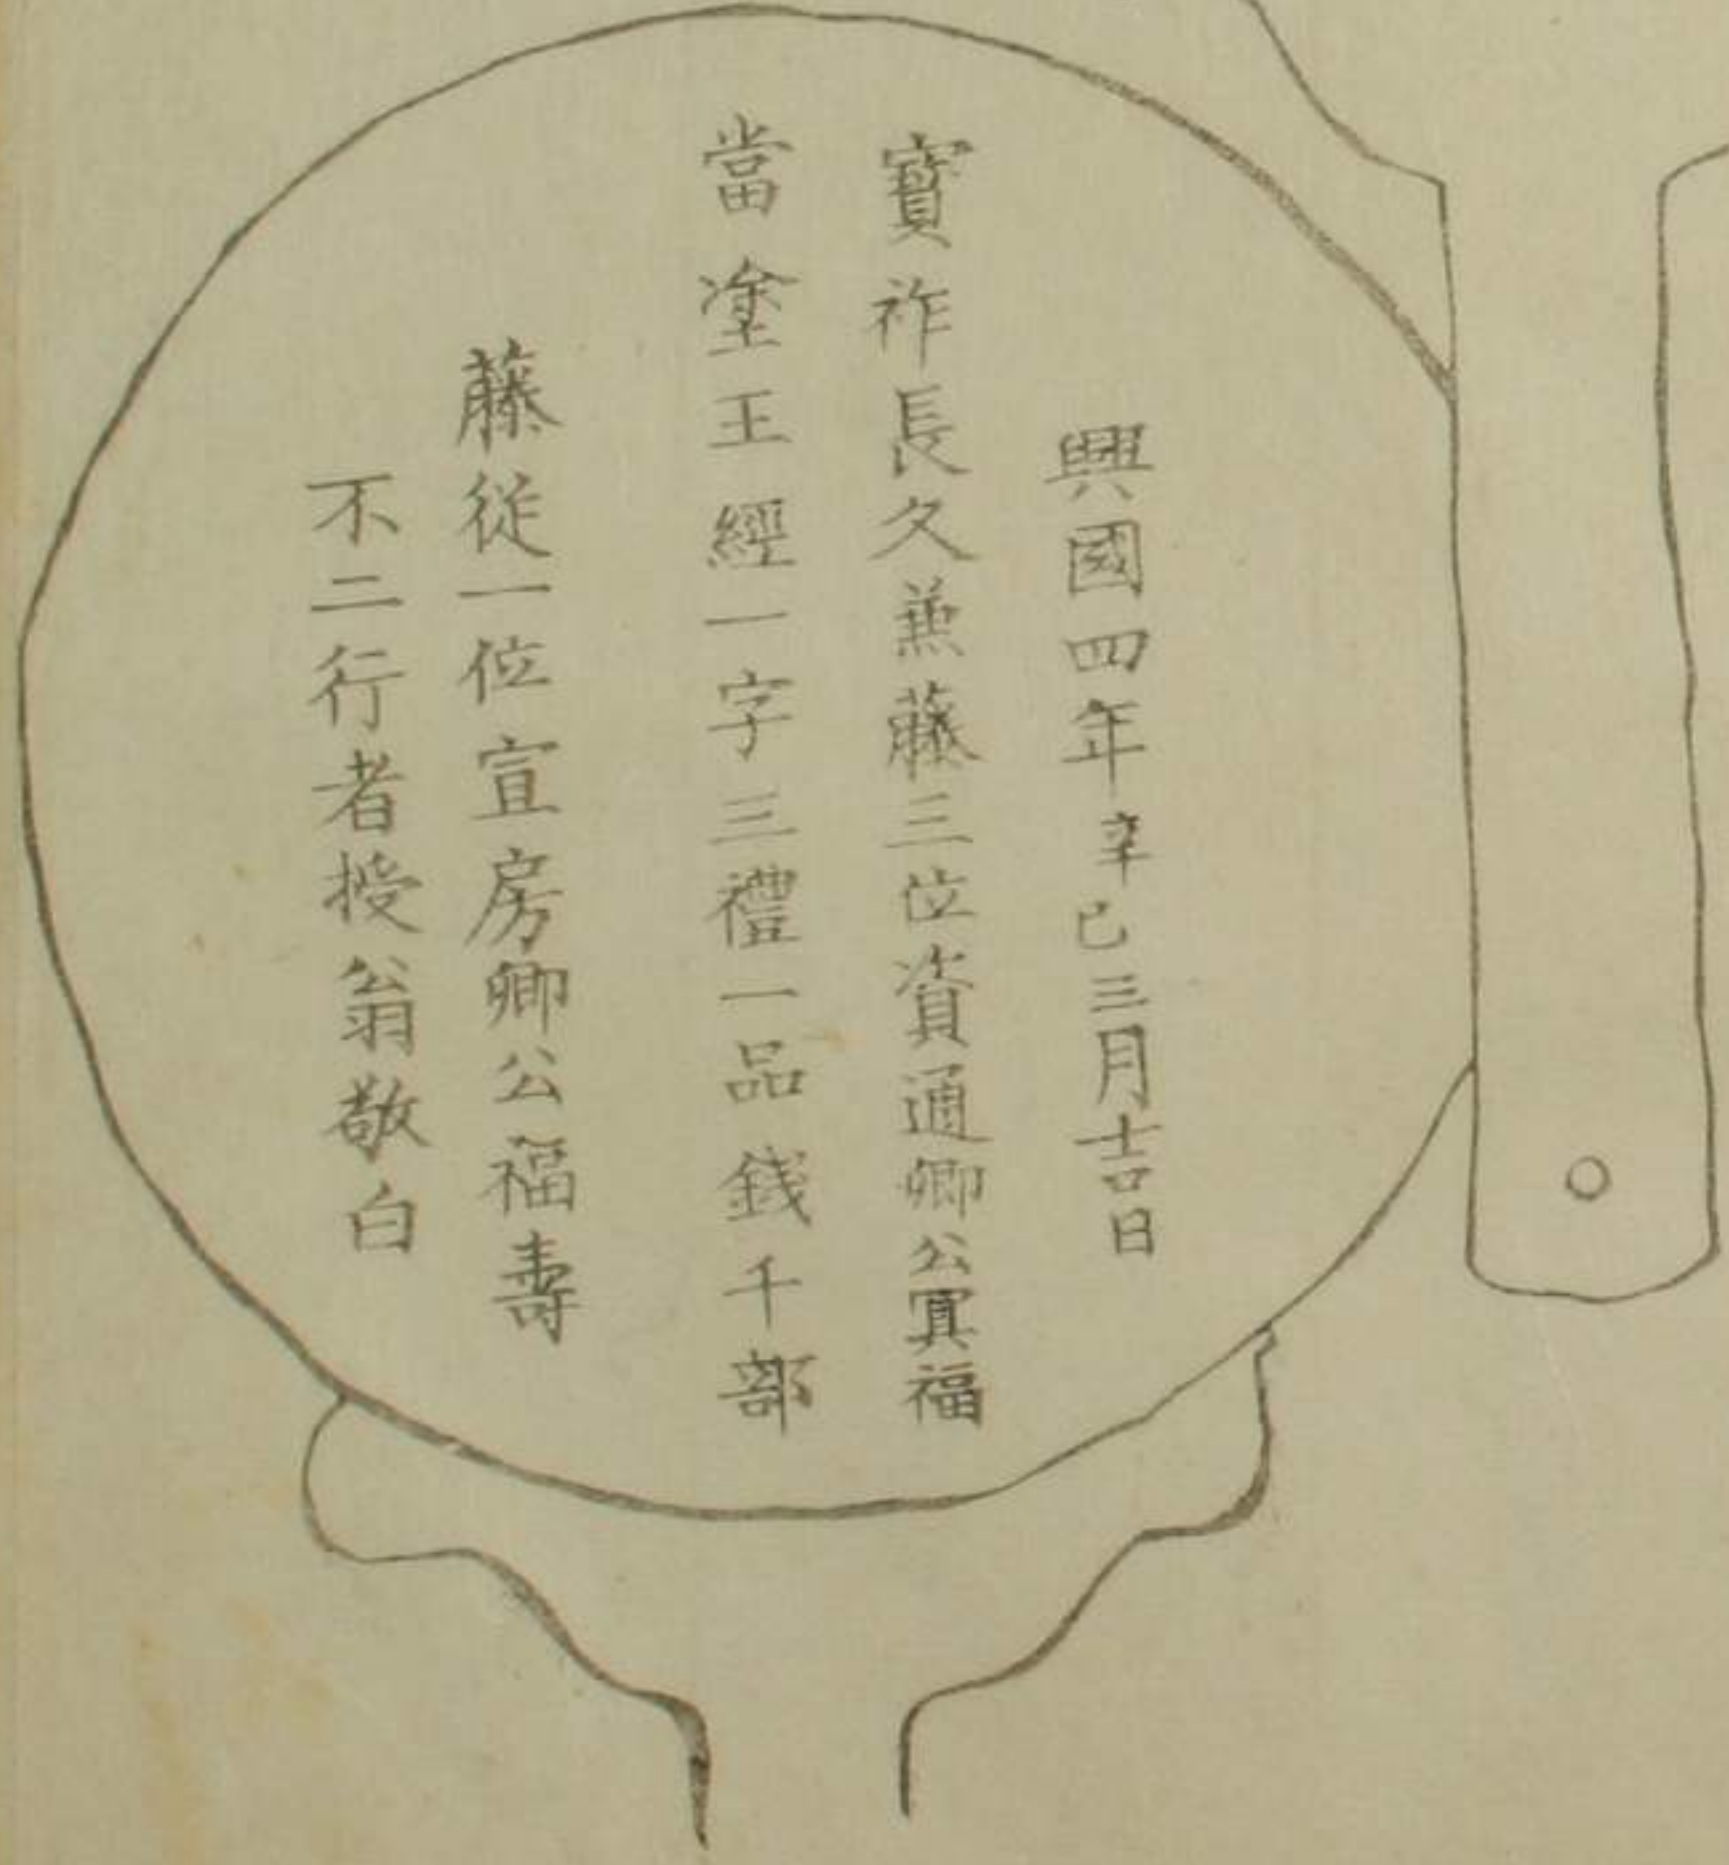 興國四年辛巳三月吉日
寶祚長久兼藤三位資通卿公冥福
當塗王經一字三禮一品錢千部
藤從一位宣房卿公福壽
不二行者授翁敬白